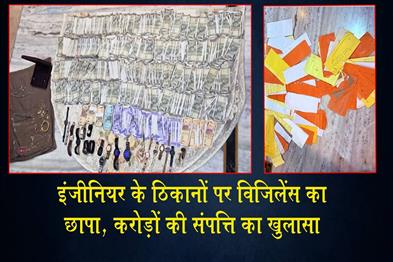 इंजीनियर के ठिकानों पर विजिलेंस का
छापा, करोड़ों की संपत्ति का खुलासा